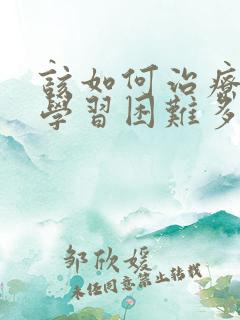 該如何治療
學習困難多
邹欣媛
未经同意禁止转载